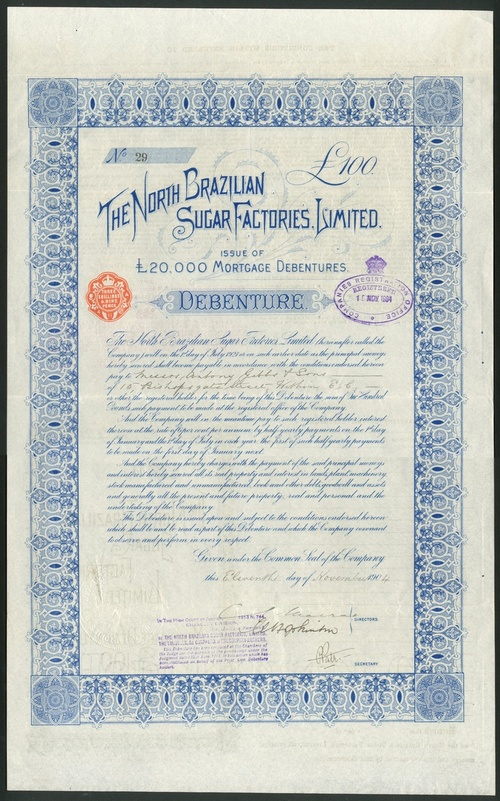 No 29
£100.
THE NORTH BRAZILIAN
SUGAR FACTORIES, LIMITED.
ISSUE OF
£20,000 MORTGAGE DEBENTURES.
DEBENTURE
THREE
SHILLINGS
& NINE
PENCE
COMPANIES REGISTRATION OFFICE
REGISTERED
NOV. 1904
The North Brazilian Sugar Factories, Limited (hereinafter called the
Company) will on the 1st day of July 1924 or on such earlier date as the principal moneys
hereby secured shall become payable in accordance with the conditions endorsed hereon
pay to Messrs. Antony Gibbs & Sons
of 15, Bishopsgate Street, Within, E.C.
or other the registered holder for the time being of the Debenture the sum of One Hundred
Pounds, such payment to be made at the registered office of the Company.
And the Company will in the meantime pay to such registered holder interest
thereon at the rate of per cent per annum by half yearly payments on the 1st day of
January and the 1st day of July in each year the first of such half yearly payments
to be made on the first day of January next.
And the Company hereby charges with the payment of the said principal moneys
and interest hereby secured all its real property and interest in lands, plant, machinery
stock manufactured and unmanufactured, book and other debts, goodwill and assets
and generally all the present and future property, real and personal and the
undertaking of the Company.
This Debenture is issued upon and subject to the conditions endorsed hereon
which shall be read as part of this Debenture and which the Company covenant
to observe and perform in every respect.
Given under the Common Seal of the Company
this Eleventh day of November 1904
DIRECTORS.
SECRETARY.